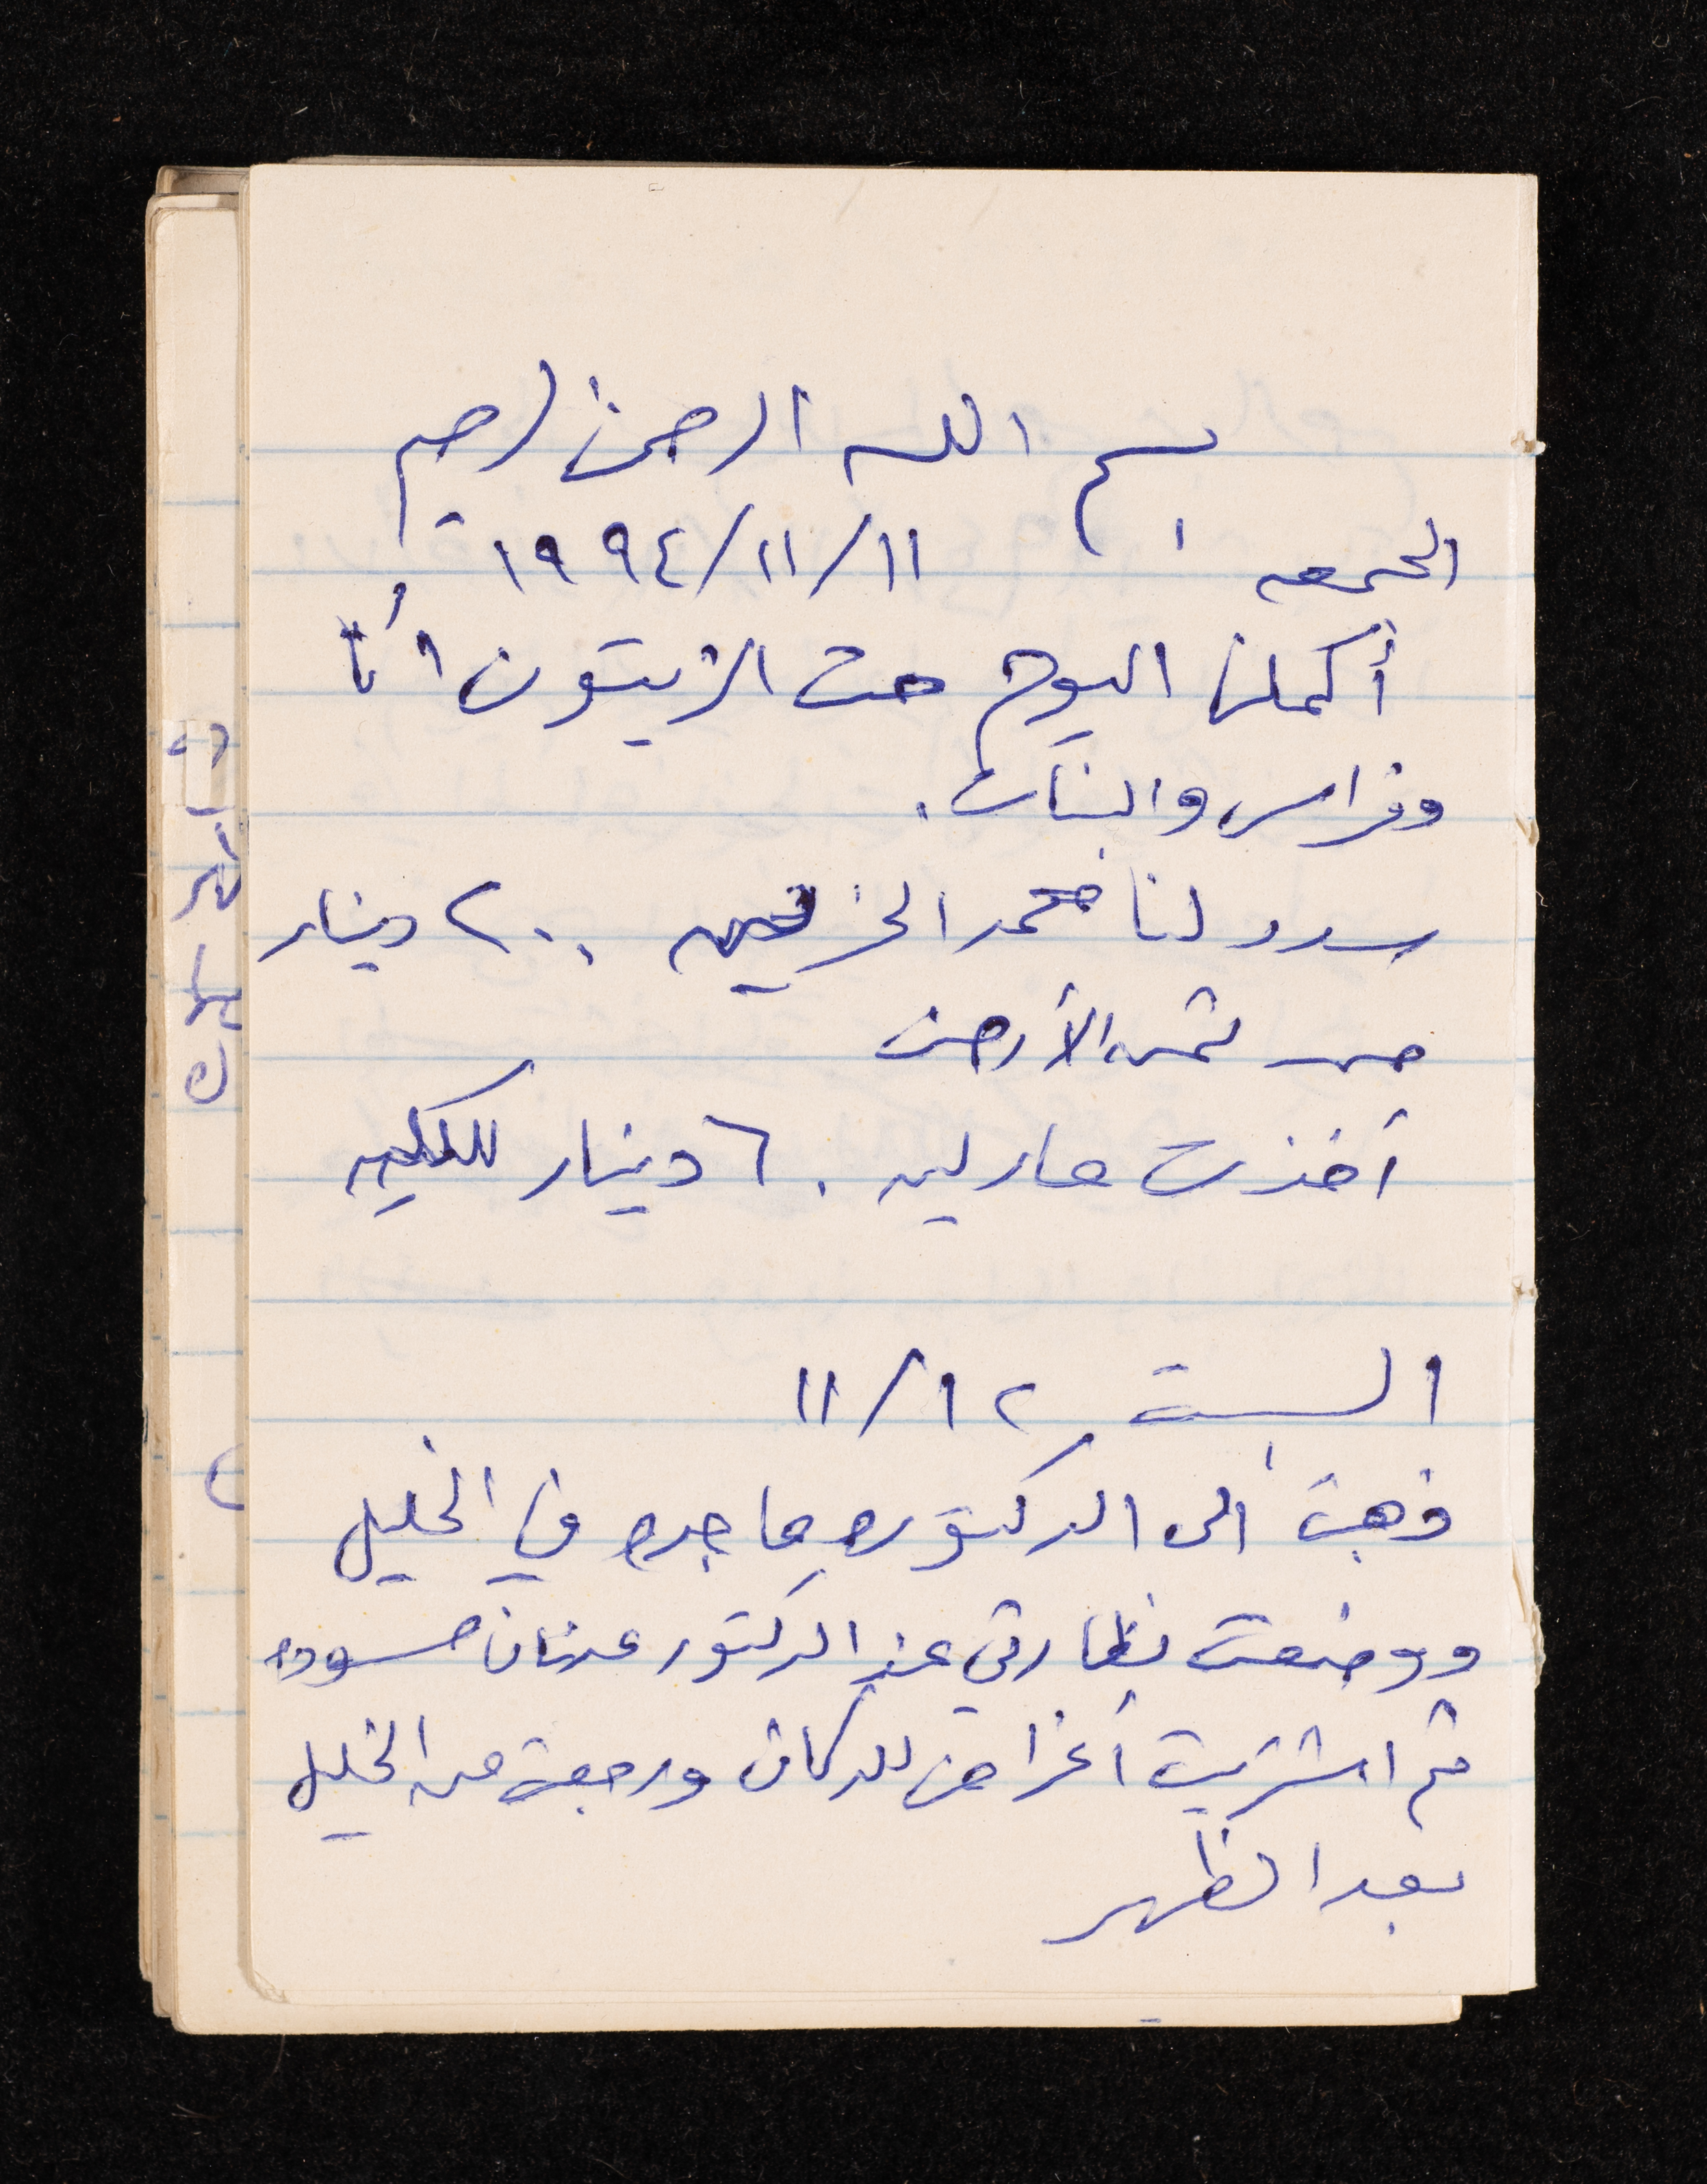 بسم الله الرحمن الرحيم
الجمعه ١١/١١/١٩٩٤
أكملنا اليوم حت الزيتون أنا
وفراس والبنات.
سدد لنا محمد ٢٠٠ دينار
من ثمن الأرض
أخذت ٦٠ دينار للكليه
السبت ١٢/١١
ذهبت الى الدكتوره ماجده في الخليل
ووضعت نظارتي عند الدكتور عدنان مسوده
ثم اشتريت أغراض للدكان ورجعت من الخليل
بعد الظهر